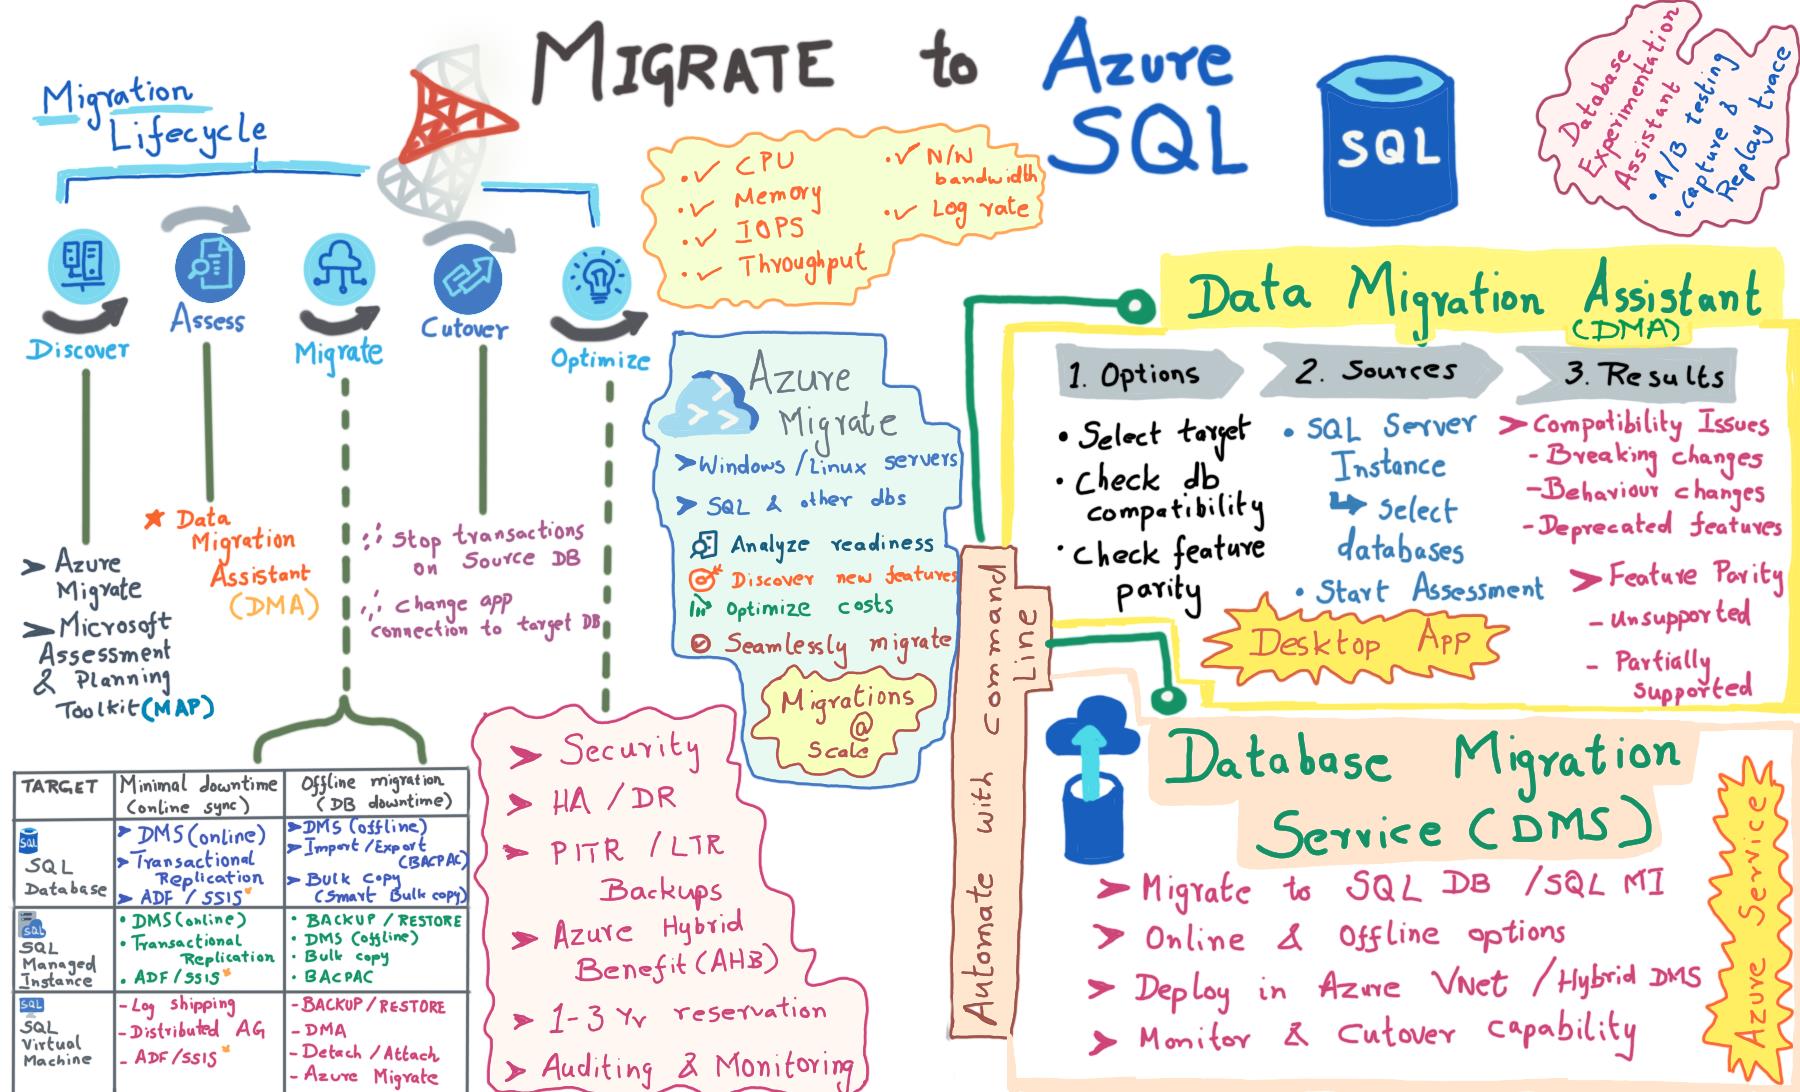 MIGRATE to Azure
SQL
SQL
Database
Experimentation
Assistant
• A/B testing
• Capture &
Replay trace
Migration
Lifecycle
Discover
Assess
Migrate
Cutover
Optimize
➤ Azure
Migrate
➤ Microsoft
Assessment
& Planning
Toolkit (MAP)
★ Data
Migration
Assistant
(DMA)
Stop transactions
on Source DB
Change app
connection to target DB
• ✓ CPU
• ✓ Memory
• ✓ IOPS
• ✓ Throughput
• ✓ N/W
bandwidth
• ✓ Log rate
Azure
Migrate
➤ Windows / Linux servers
➤ SQL & other dbs
Analyze readiness
Discover new features
Optimize costs
Seamlessly migrate
Migrations
@
Scale
TARGET
Minimal downtime
(online sync)
Offline migration
(DB downtime)
SQL
SQL
Database
➤ DMS (online)
➤ Transactional
Replication
➤ ADF / SSIS*
➤ DMS (offline)
➤ Import / Export
(BACPAC)
➤ Bulk Copy
(Smart Bulk copy)
SQL
SQL
Managed
Instance
• DMS (online)
• Transactional
Replication
• ADF / SSIS*
• BACKUP / RESTORE
• DMS (offline)
• Bulk copy
• BACPAC
SQL
SQL
Virtual
Machine
- Log shipping
- Distributed AG
- ADF / SSIS*
- BACKUP / RESTORE
- DMA
- Detach / Attach
- Azure Migrate
➤ Security
➤ HA / DR
➤ PITR / LTR
Backups
➤ Azure Hybrid
Benefit (AHB)
➤ 1-3 Yr reservation
➤ Auditing & Monitoring
Automate with Command
Line
Data Migration Assistant
(DMA)
1. Options
• Select target
• Check db
compatibility
• Check feature
parity
2. Sources
• SQL Server
Instance
↳ Select
databases
• Start Assessment
3. Results
➤ Compatibility Issues
- Breaking changes
- Behaviour changes
- Deprecated features
➤ Feature Parity
- Unsupported
- Partially
supported
Desktop App
Database Migration
Service (DMS)
➤ Migrate to SQL DB / SQL MI
➤ Online & Offline options
➤ Deploy in Azure VNet / Hybrid DMS
➤ Monitor & Cutover capability
Azure Service